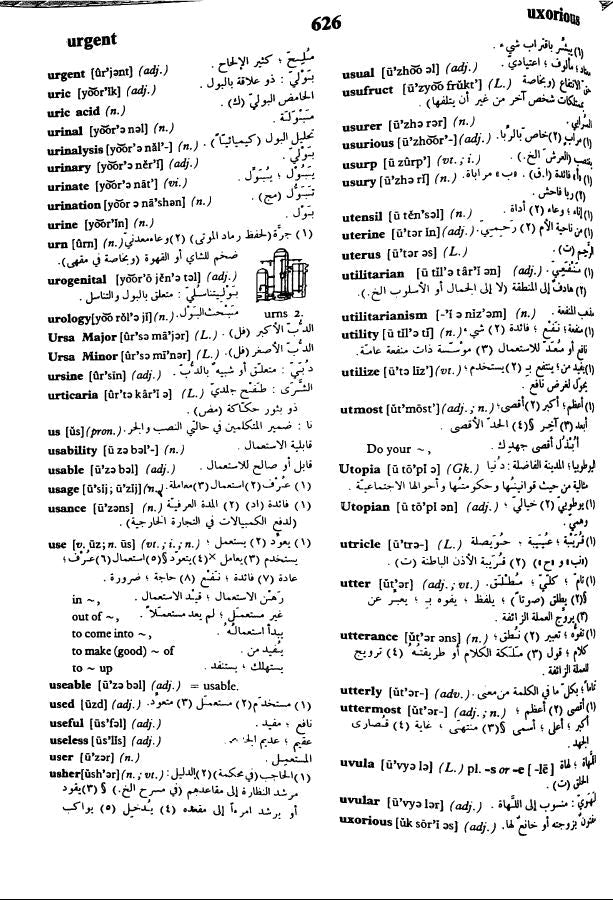 urgent
626
uxorious
urgent [ûr'jənt] (adj.) مُلِحّ ؛ كثير الإلحاح .
uric [yŏŏr'ĭk] (adj.) بَوْليّ : ذو علاقة بالبول .
uric acid (n.) الحامض البوليّ (ك) .
urinal [yŏŏr'ə nəl] (n.) مَبْوَلة .
urinalysis [yŏŏr'ə năl'-] (n.) تحليل البول (كيميائياً) .
urinary [yŏŏr'ə nĕr'ĭ] (adj.) بَوْليّ .
urinate [yŏŏr'ə nāt'] (vi.) يَبُول ؛ يُبَوِّل .
urination [yŏŏr ə nā'shən] (n.) تَبَوُّل (مج) .
urine [yŏŏr'ĭn] (n.) بَوْل .
urn [ûrn] (n.) (١) جرّة (لحفظ رماد الموتى) (٢) وعاء معدني
ضخم للشاي أو القهوة (وبخاصة في مقهى) .
urogenital [yŏŏr'ō jĕn'ə təl] (adj.)
بَوْليتناسليّ : متعلق بالبول والتناسل .
urology [yŏŏ rŏl'ə jĭ] (n.) مَبْحَث البول .
urns 2.
Ursa Major [ûr'sə mā'jər] (L.) الدبّ الأكبر (فل) .
Ursa Minor [ûr'sə mī'nər] (L.) الدبّ الأصغر (فل) .
ursine [ûr'sīn] (adj.) دُبّيّ : متعلق أو شبيه بالدبّ .
urticaria [ûr'tə kâr'ĭ ə] (L.) الشَّرَى : طَفَح جلديّ
ذو بثور حكّاكة (مض) .
us [ŭs] (pron.) نا : ضمير المتكلمين في حالتي النصب والجر .
usability [ū zə bəl'-] (n.) قابلية الاستعمال .
usable [ū'zə bəl] (adj.) قابل أو صالح للاستعمال .
usage [ū'sĭj; ū'zĭj] (n.) (١) عُرْف (٢) استعمال (٣) معاملة .
usance [ū'zəns] (n.) (١) فائدة (اد) (٢) المدة العرفيّة
(لدفع الكمبيالات في التجارة الخارجية) .
use [v. ūz; n. ūs] (vt.; i.; n.) (١) يعوّد (٢) يستعمل ؛
يستخدم (٣) يعامل ×(٤) يتعود §(٥) استعمال (٦) عُرْف ؛
عادة (٧) فائدة ؛ نَفْع (٨) حاجة ؛ ضرورة .
in ~, رَهْن الاستعمال ؛ قَيْد الاستعمال .
out of ~, غير مستعمل ؛ لم يعد مستعملاً .
to come into ~, يبدأ استعماله .
to make (good) ~ of يُفيد من .
to ~ up يستهلك ؛ يستنفد .
useable [ū'zə bəl] (adj.) = usable.
used [ūzd] (adj.) (١) مستخدَم (٢) مستعمل (٣) متعود .
useful [ūs'fəl] (adj.) نافع ؛ مفيد .
useless [ūs'lĭs] (adj.) عقيم ؛ عديم
user [ū'zər] (n.) المستعمِل .
usher [ŭsh'ər] (n.; vt.) (١) الحاجب (في محكمة) (٢) الدليل :
مرشد النظارة إلى مقاعدهم (في مسرح الخ.) §(٣) يقود
أو يرشد امرءاً إلى مقعده (٤) يُدخِل (٥) يواكب
(١) يبشّر باقتراب شيء .
usual [ū'zhŏŏ əl] (adj.) معتاد ؛ مألوف ؛ اعتياديّ .
usufruct [ū'zyŏŏ frŭkt'] (L.) حق الانتفاع (وبخاصة
بممتلكات شخص آخر من غير أن يتلفها) .
usurer [ū'zhə rər] (n.) المرابي .
usurious [ū'zhŏŏr'-] (adj.) (١) مرابٍ (٢) خاص بالربا .
usurp [ū zûrp'] (vt.; i.) يغتصب (العرش الخ.) .
usury [ū'zhə rĭ] (n.) (١) فائدة (ا.ق) . «ب» مراباة .
(٢) ربا فاحش .
utensil [ū tĕn'səl] (n.) (١) إناء ؛ وعاء (٢) أداة .
uterine [ū'tər ĭn] (adj.) (١) من ناحية الأم (٢) رحميّ .
uterus [ū'tər əs] (L.) الرحم (ت) .
utilitarian [ū tĭl'ə târ'ĭ ən] (adj.) (١) مَنْفعيّ .
(٢) هادف إلى المنفعة (لا إلى الجمال أو الأسلوب الخ.) .
utilitarianism [-'ĭ ə nĭz'əm] (n.) مذهب المنفعة .
utility [ū tĭl'ə tĭ] (n.) (١) منفعة ؛ نَفْع ؛ فائدة (٢) شيء
نافع أو مُعَدّ للاستعمال (٣) مؤسّسة ذات منفعة عامة .
utilize [ū'tə līz'] (vt.) (١) يفيد من ؛ ينتفع بـ (٢) يستخدم ؛
يحوّل لغرض نافع .
utmost [ŭt'mōst'] (adj.; n.) (١) أعظم ؛ أكبر (٢) أقصى ؛
أبعد (٣) آخر §(٤) الحدّ الأقصى .
Do your ~, أُبْذُل أقصى جهدك .
Utopia [ū tō'pĭ ə] (Gk.) اليوطوبيا ؛ المدينة الفاضلة : دُنيا
مثالية من حيث قوانينها وحكومتها وأحوالها الاجتماعيّة .
Utopian [ū tō'pĭ ən] (adj.) (١) يوطوبيّ (٢) خياليّ ؛
وهميّ .
utricle [ū'trə-] (L.) (١) قُرَيْبة ؛ عُيَيْبة ، حُوَيْصِلة
(٢) قُرَيْبة الأذن الباطنة (ت) .
utter [ŭt'ər] (adj.; vt.) (١) تامّ ؛ كلّيّ ؛ مُطلَق .
§(٢) يطلق (صوتاً) ؛ يلفظ ؛ يفوه بـ ؛ يعبر عن
(٣) يروّج العملة الزائفة .
utterance [ŭt'ər əns] (n.) (١) تفوّه ؛ تعبير (٢) نُطْق ؛
كلام ؛ قول (٣) مَلَكة الكلام أو طريقته (٤) ترويج
العملة الزائفة .
utterly [ŭt'ər-] (adv.) تماماً ؛ بكلّ ما في الكلمة من معنى .
uttermost [ŭt'ər-] (adj.; n.) (١) أقصى (٢) أعظم ؛
أكبر ؛ أعلى ؛ أسمى §(٣) منتهى ، غاية (٤) قُصارى
الجهد .
uvula [ū'vyə lə] (L.) pl. -s or -e [-lē] اللَّهاة ؛ لهاة
الحلق (ت) .
uvular [ū'vyə lər] (adj.) لَهَويّ : منسوب إلى اللَّهاة .
uxorious [ŭk sōr'ĭ əs] (adj.) مفتون بزوجته أو خانع لها .